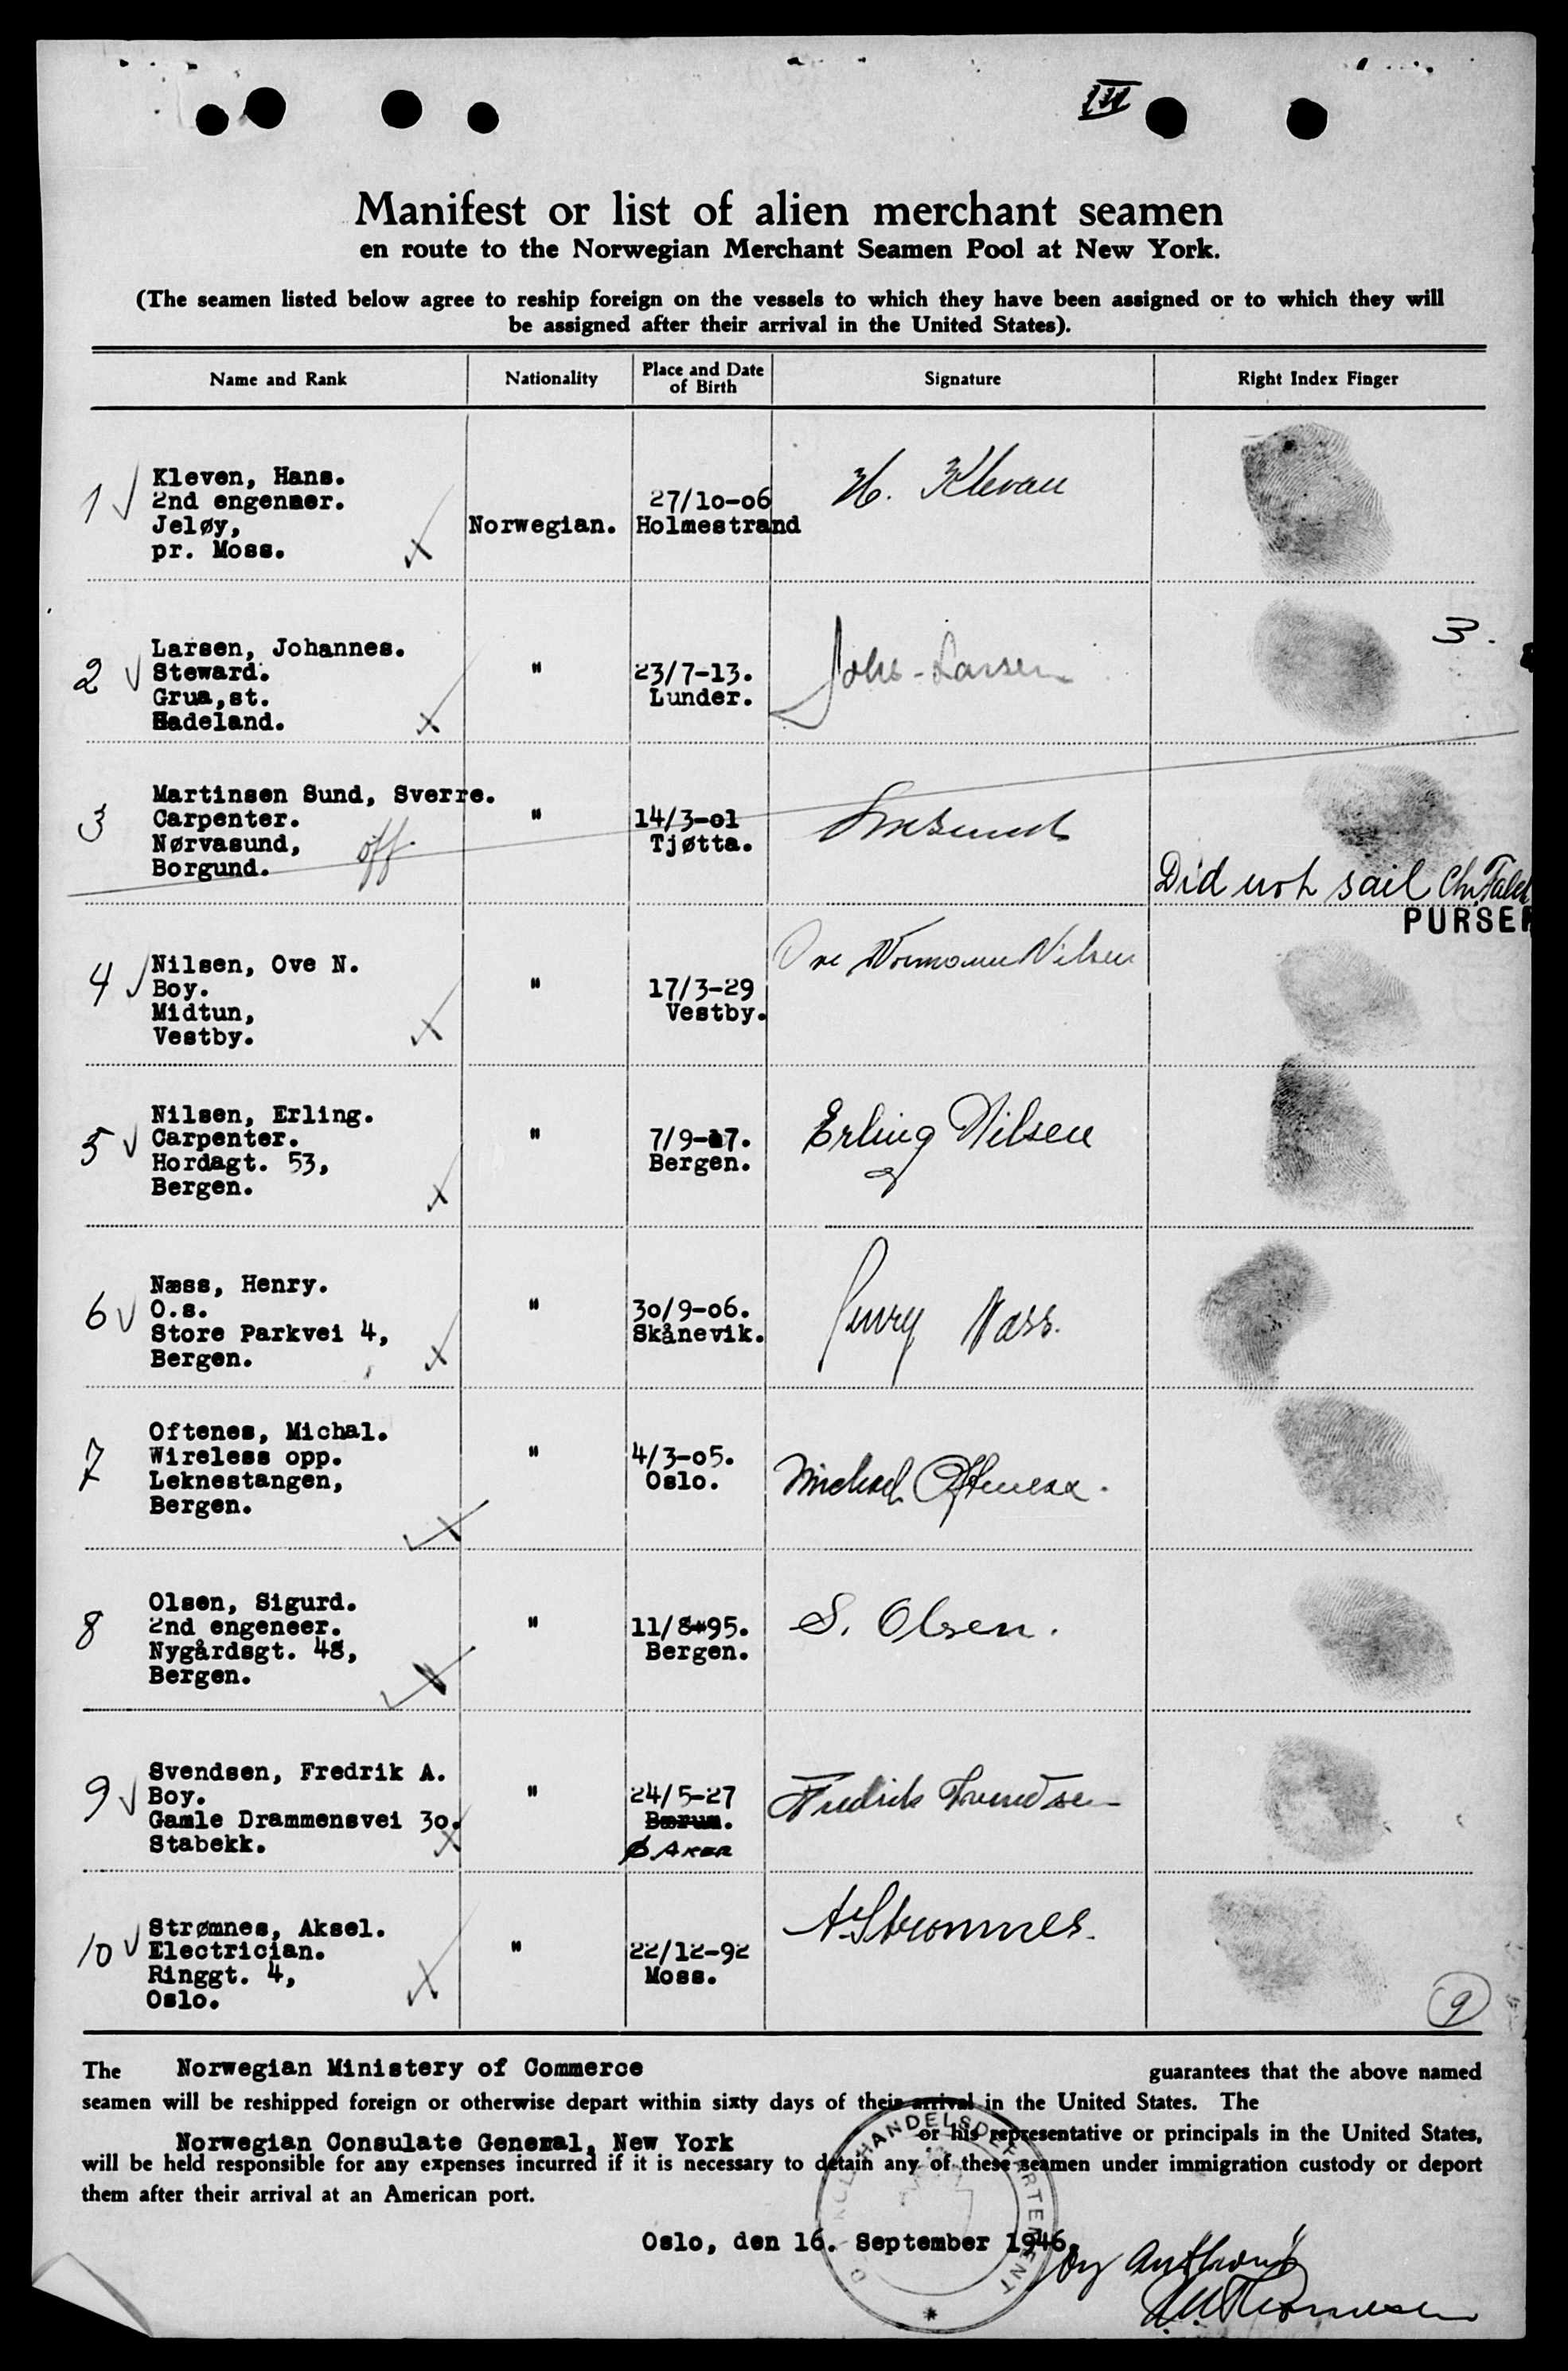 III
Manifest or list of alien merchant seamen
en route to the Norwegian Merchant Seamen Pool at New York.
(The seamen listed below agree to reship foreign on the vessels to which they have been assigned or to which they will
be assigned after their arrival in the United States).
Name and Rank Nationality Place and Date of Birth Signature Right Index Finger
1 Kleven, Hans.
2nd engeneer.
Jeløy,
pr. Moss.
Norwegian.
27/10-06
Holmestrand
H. Klevan
2 Larsen, Johannes.
Steward.
Grua,st.
Hadeland.
"
23/7-13.
Lunder.
Johs-Larsen
3.
3 Martinsen Sund, Sverre.
Carpenter.
Nørvasund,
Borgund.
off
"
14/3-01
Tjøtta.
Did not sail Chr. Falck
PURSER
4 Nilsen, Ove N.
Boy.
Midtun,
Vestby.
"
17/3-29
Vestby.
Ove Normann Nilsen
5 Nilsen, Erling.
Carpenter.
Hordagt. 53,
Bergen.
"
7/9-17.
Bergen.
Erling Nilsen
6 Næss, Henry.
O.s.
Store Parkvei 4,
Bergen.
"
30/9-06.
Skånevik.
Henry Næss.
7 Oftenes, Michal.
Wireless opp.
Leknestangen,
Bergen.
"
4/3-05.
Oslo.
Michael Ofteness.
8 Olsen, Sigurd.
2nd engeneer.
Nygårdsgt. 48,
Bergen.
"
11/8-95.
Bergen.
S. Olsen.
9 Svendsen, Fredrik A.
Boy.
Gamle Drammensvei 30.
Stabekk.
"
24/5-27
Bærum.
Ø AKER
Fredrik Svendsen
10 Strømnes, Aksel.
Electrician.
Ringgt. 4,
Oslo.
"
22/12-92
Moss.
A. Strømnes.
9
The Norwegian Ministery of Commerce guarantees that the above named
seamen will be reshipped foreign or otherwise depart within sixty days of their arrival in the United States. The
Norwegian Consulate General, New York or his representative or principals in the United States,
will be held responsible for any expenses incurred if it is necessary to detain any of these seamen under immigration custody or deport
them after their arrival at an American port.
HANDELSDEPARTEMENT
Oslo, den 16. September 1946.